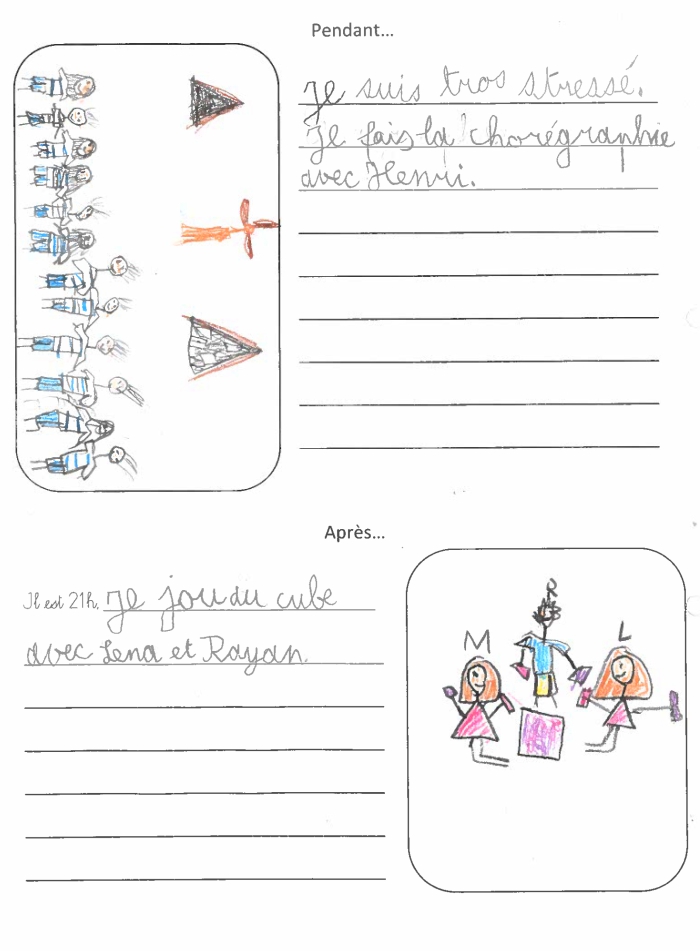 Pendant...
Je suis tros stressé.
Je fais la chorégraphie
avec Henri.
Après...
Il est 21h. Je jou du cube
avec Lena et Rayan
R
M
L